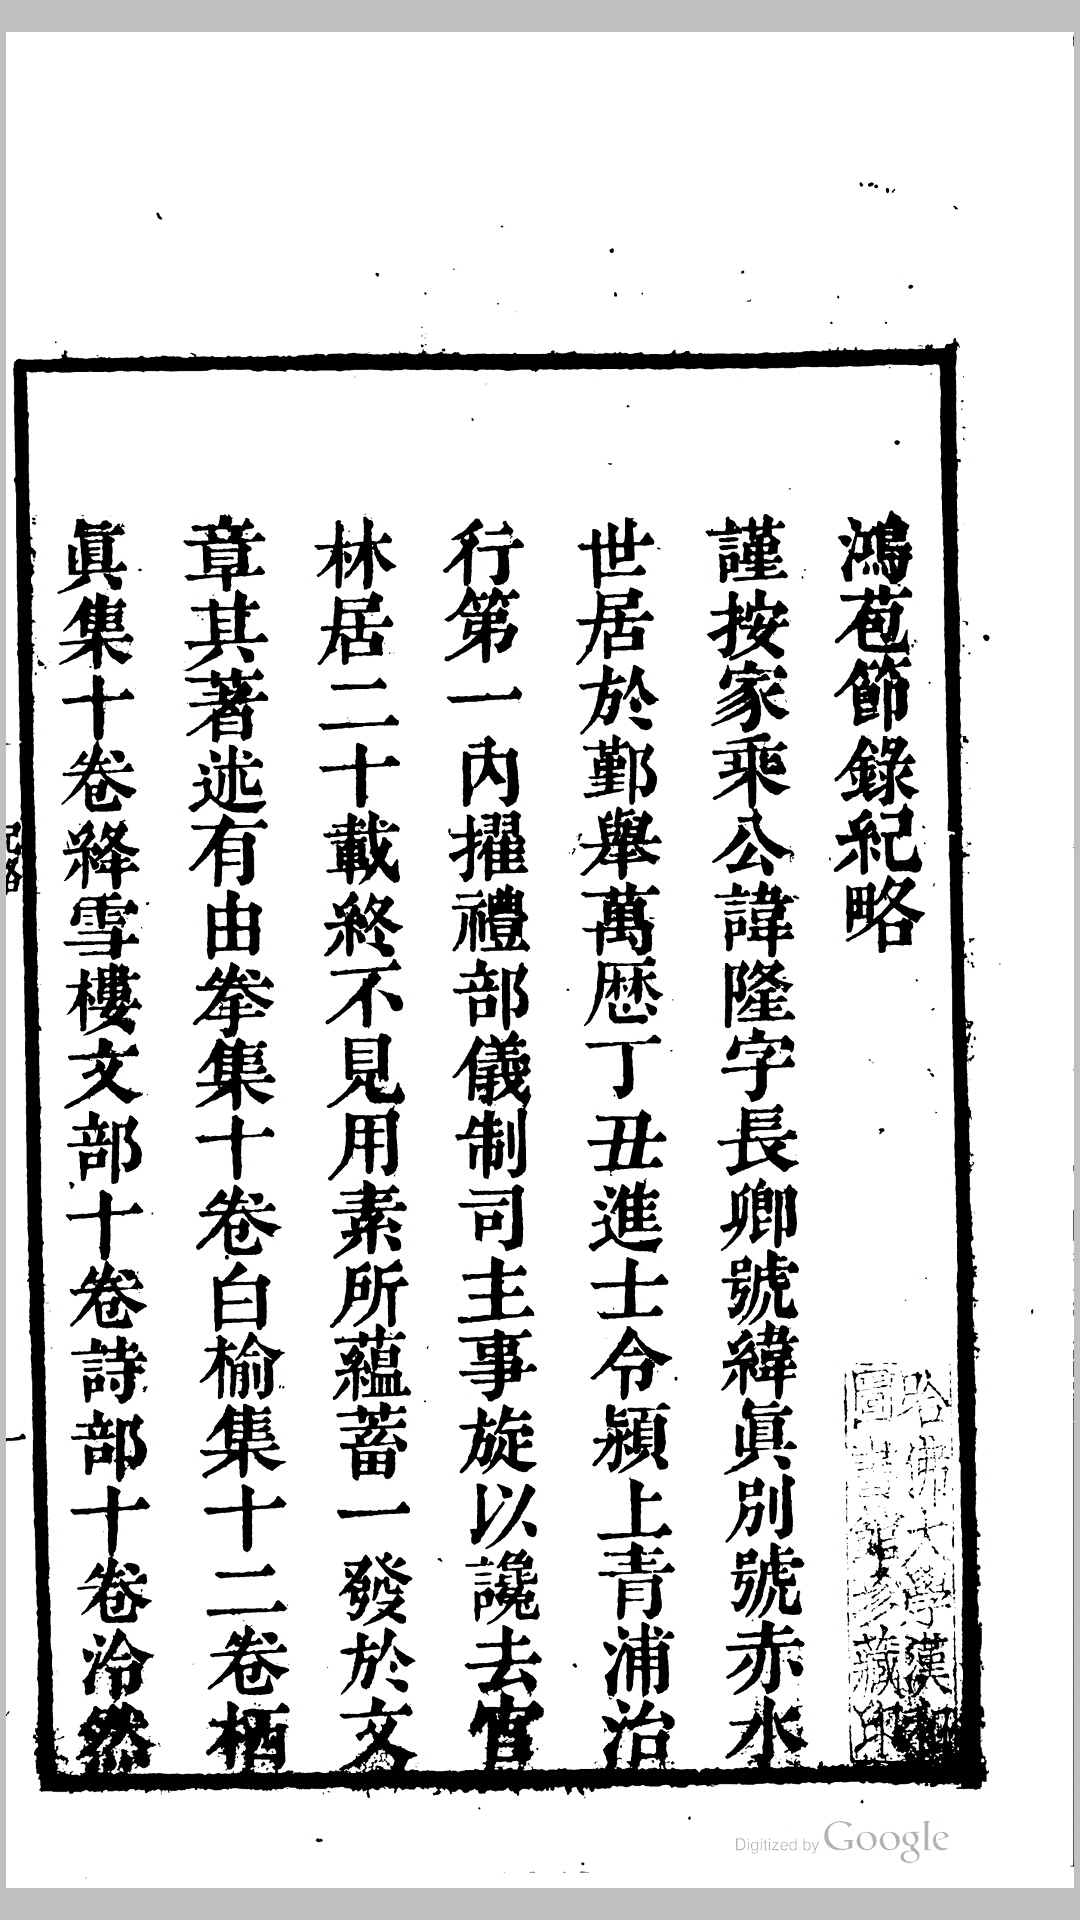 鴻苞節錄紀略
謹按家乘公諱隆字長卿號緯眞別號赤水
世居於鄞舉萬歷丁丑進士令潁上青浦治
行第一內擢禮部儀制司主事旋以讒去官
林居二十載終不見用素所蘊蓄一發於文
章其著述有由拳集十卷白榆集十二卷栖
眞集十卷絳雪樓文部十卷詩部十卷泠然
紀略
一
哈佛大學漢和
圖書館珍藏印
Digitized by Google